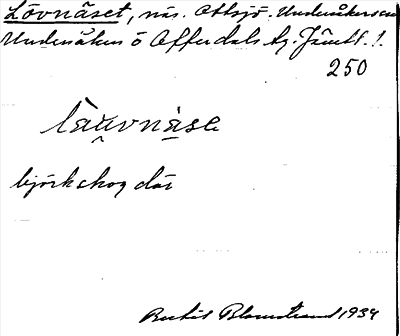 Lövnäset, näs. Ottsjö. Undersåkers sn
Undersåkers o Offerdals tg. Jämtl. l.
250
björkskog där
Bertil Blomstrand 1934